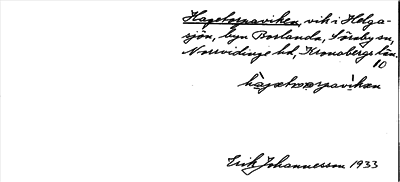 Hagetorpaviken, vik i Helga-
sjön, bynBorlanda, Söraby sn,
Norrvidinge hd, Kronobergs län.
10
Erik Johannesson 1933